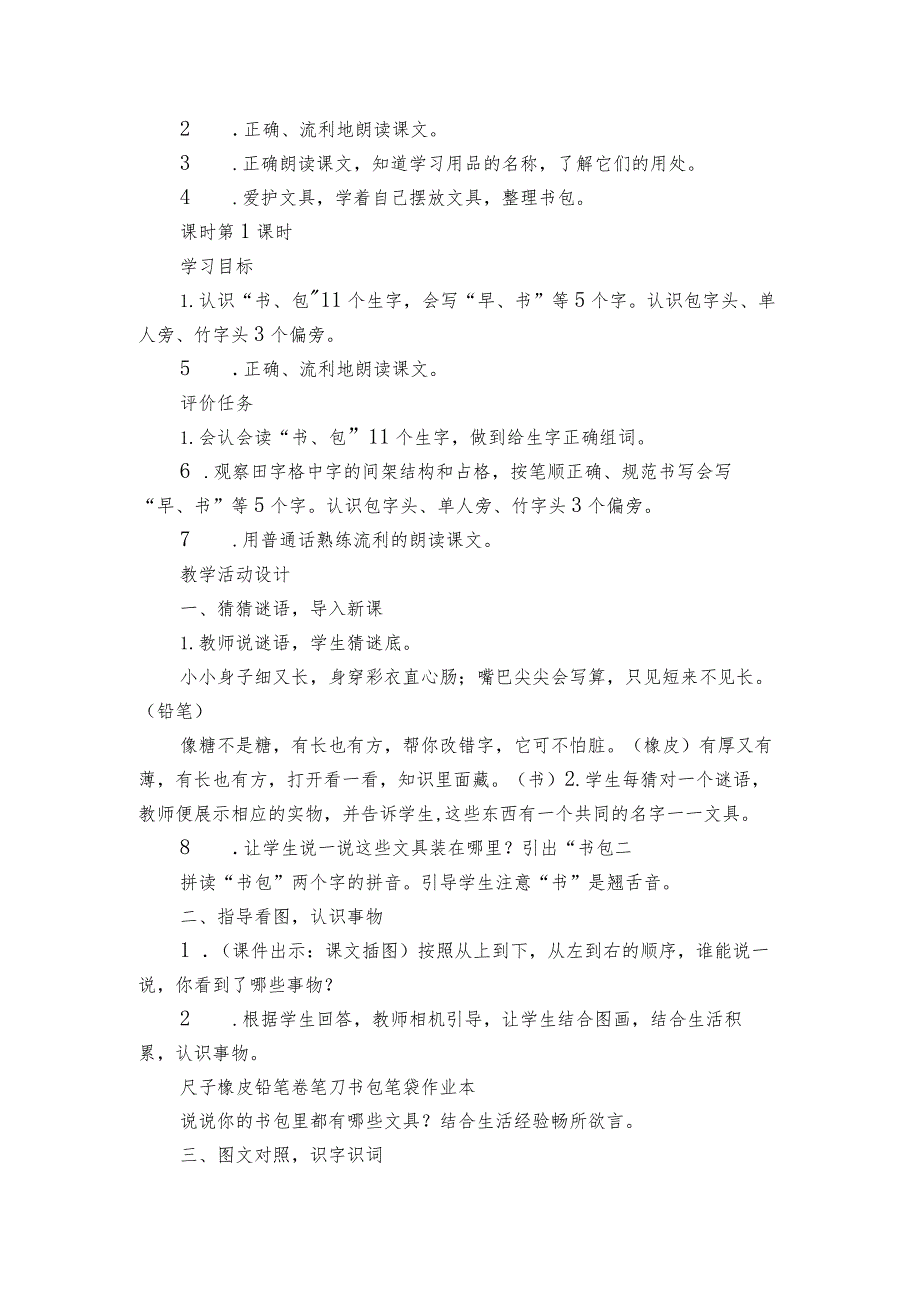 2 .正确、流利地朗读课文。
3 .正确朗读课文，知道学习用品的名称，了解它们的用处。
4 .爱护文具，学着自己摆放文具，整理书包。
课时第1课时
学习目标
1.认识“书、包"11个生字，会写“早、书”等5个字。认识包字头、单
人旁、竹字头3个偏旁。
5 .正确、流利地朗读课文。
评价任务
1.会认会读“书、包”11个生字，做到给生字正确组词。
6 .观察田字格中字的间架结构和占格，按笔顺正确、规范书写会写
“早、书”等5个字。认识包字头、单人旁、竹字头3个偏旁。
7 .用普通话熟练流利的朗读课文。
教学活动设计
一、猜猜谜语，导入新课
1.教师说谜语，学生猜谜底。
小小身子细又长，身穿彩衣直心肠；嘴巴尖尖会写算，只见短来不见长。
（铅笔）
像糖不是糖，有长也有方，帮你改错字，它可不怕脏。（橡皮）有厚又有
薄，有长也有方，打开看一看，知识里面藏。（书）2.学生每猜对一个谜语，
教师便展示相应的实物，并告诉学生,这些东西有一个共同的名字一一文具。
8 .让学生说一说这些文具装在哪里？引出“书包二
拼读“书包”两个字的拼音。引导学生注意“书”是翘舌音。
二、指导看图，认识事物
1 .（课件出示：课文插图）按照从上到下，从左到右的顺序，谁能说一
说，你看到了哪些事物？
2 .根据学生回答，教师相机引导，让学生结合图画，结合生活积
累，认识事物。
尺子橡皮铅笔卷笔刀书包笔袋作业本
说说你的书包里都有哪些文具？结合生活经验畅所欲言。
三、图文对照，识字识词